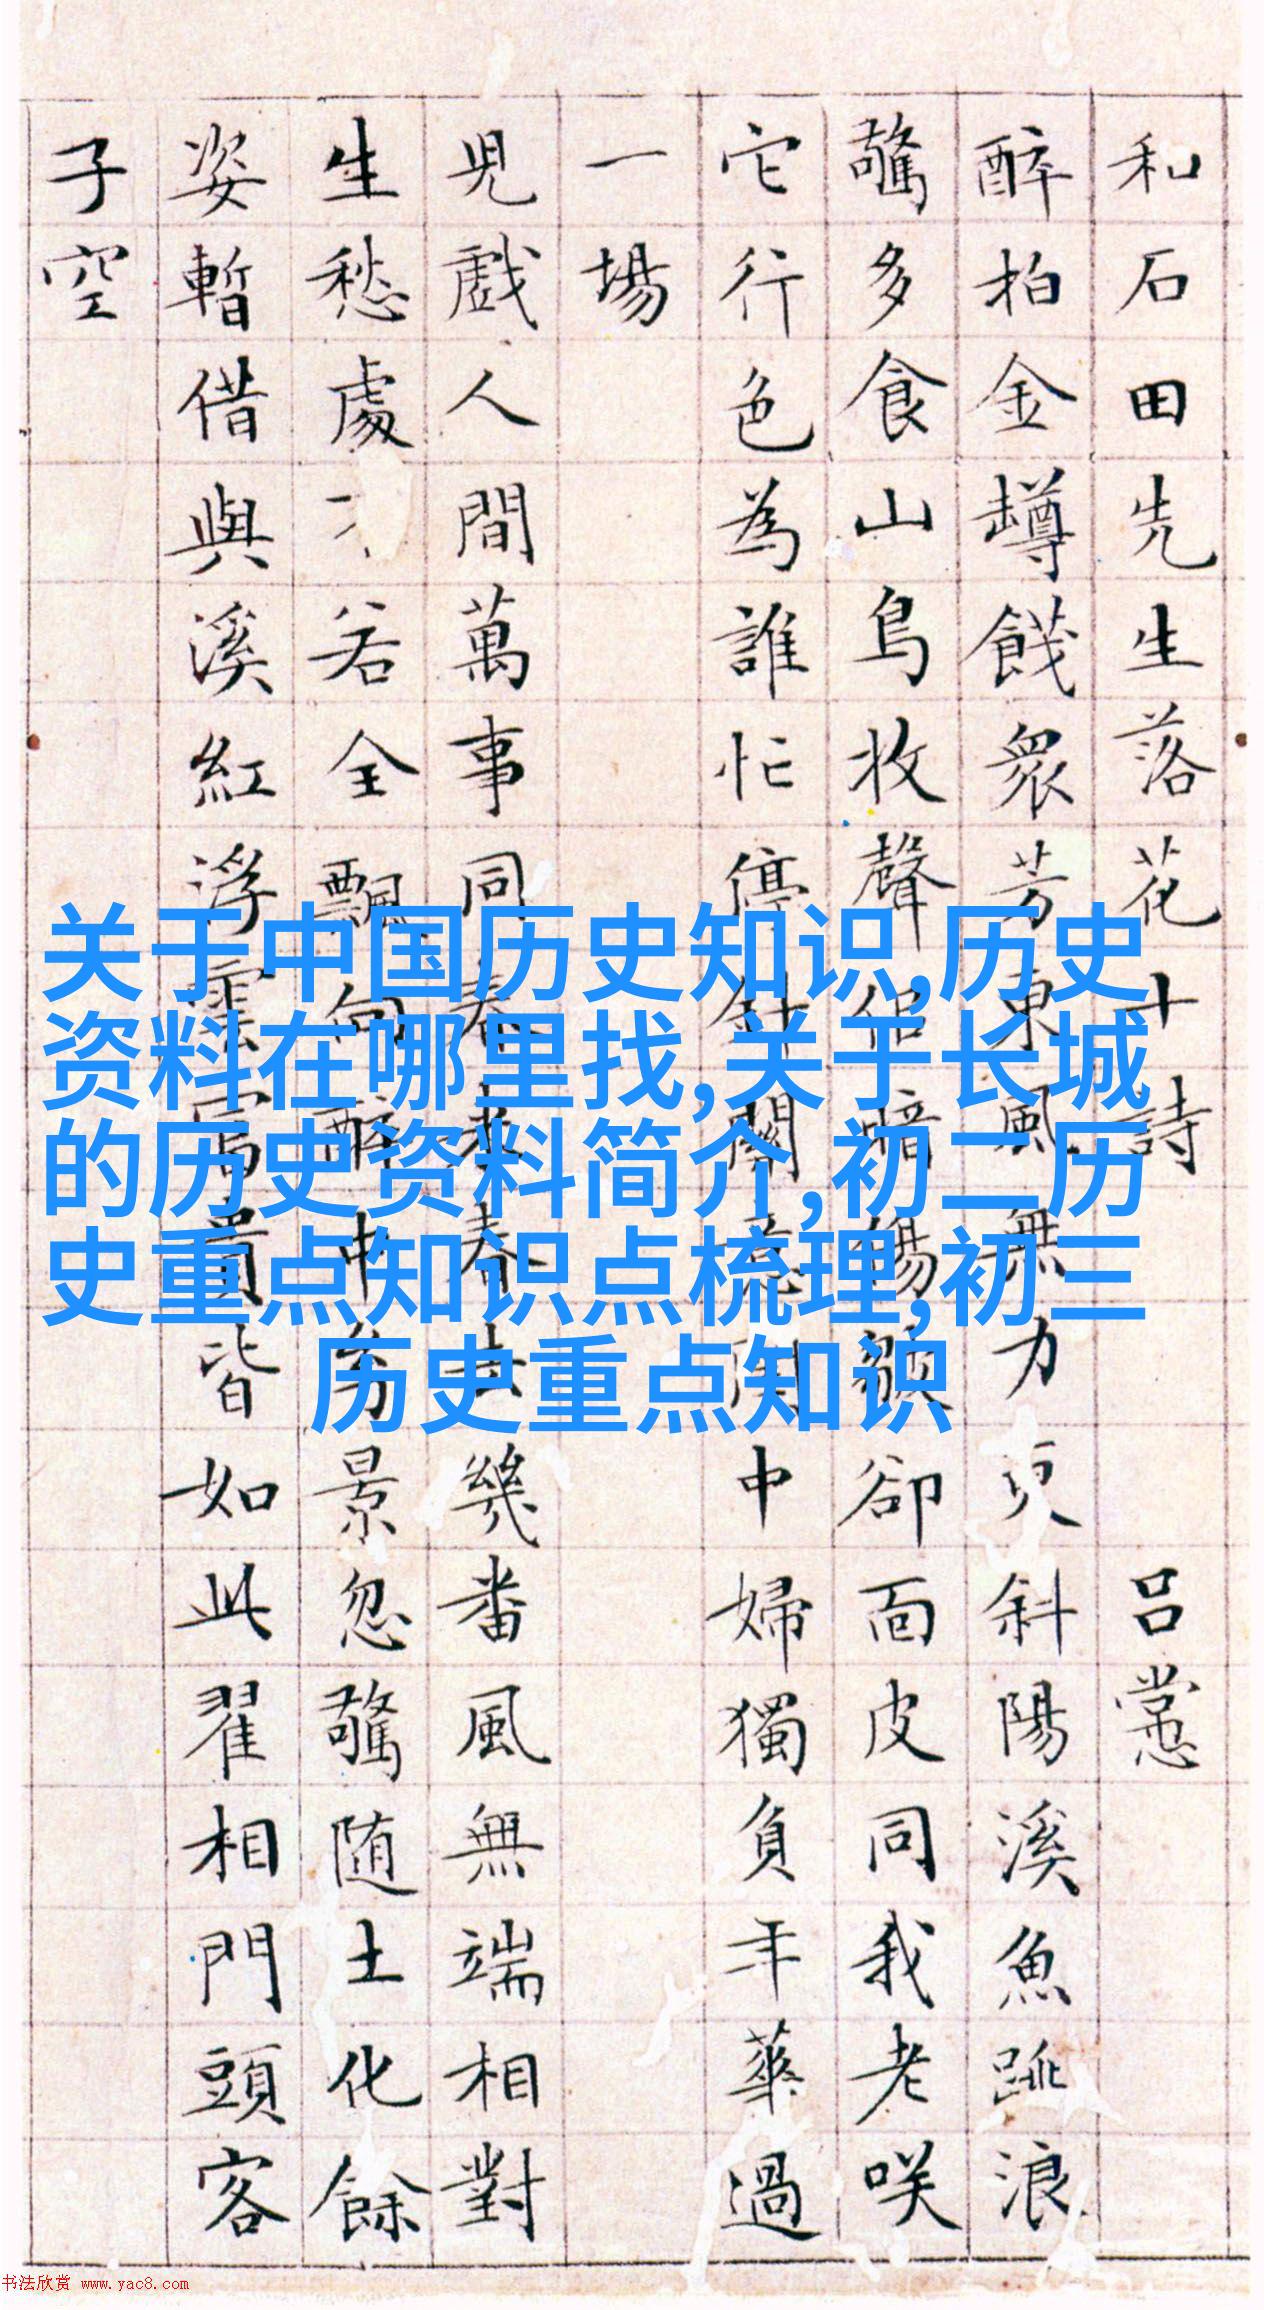 和石田先生落花十詩 呂㦂
醉拍金罇餞衆芳東風無力更斜陽溪魚跳浪
驚多食山鳥收聲侶暗傷皺卻面皮同我老咲
它行色為誰忙停針意閨中婦獨負年華過
一場
兒戲人間萬事同春來春去幾番風無端相對
生愁處若全飄向醉中芳景忽驚随土化餘
姿暫借與溪紅浮雲富貴皆如此翟相門頭客
子空
关于中国历史知识,历史
资料在哪里找,关于长城
的历史资料简介,初二历
史重点知识点梳理,初三
历史重点知识
书法欣赏 www.yac8.com